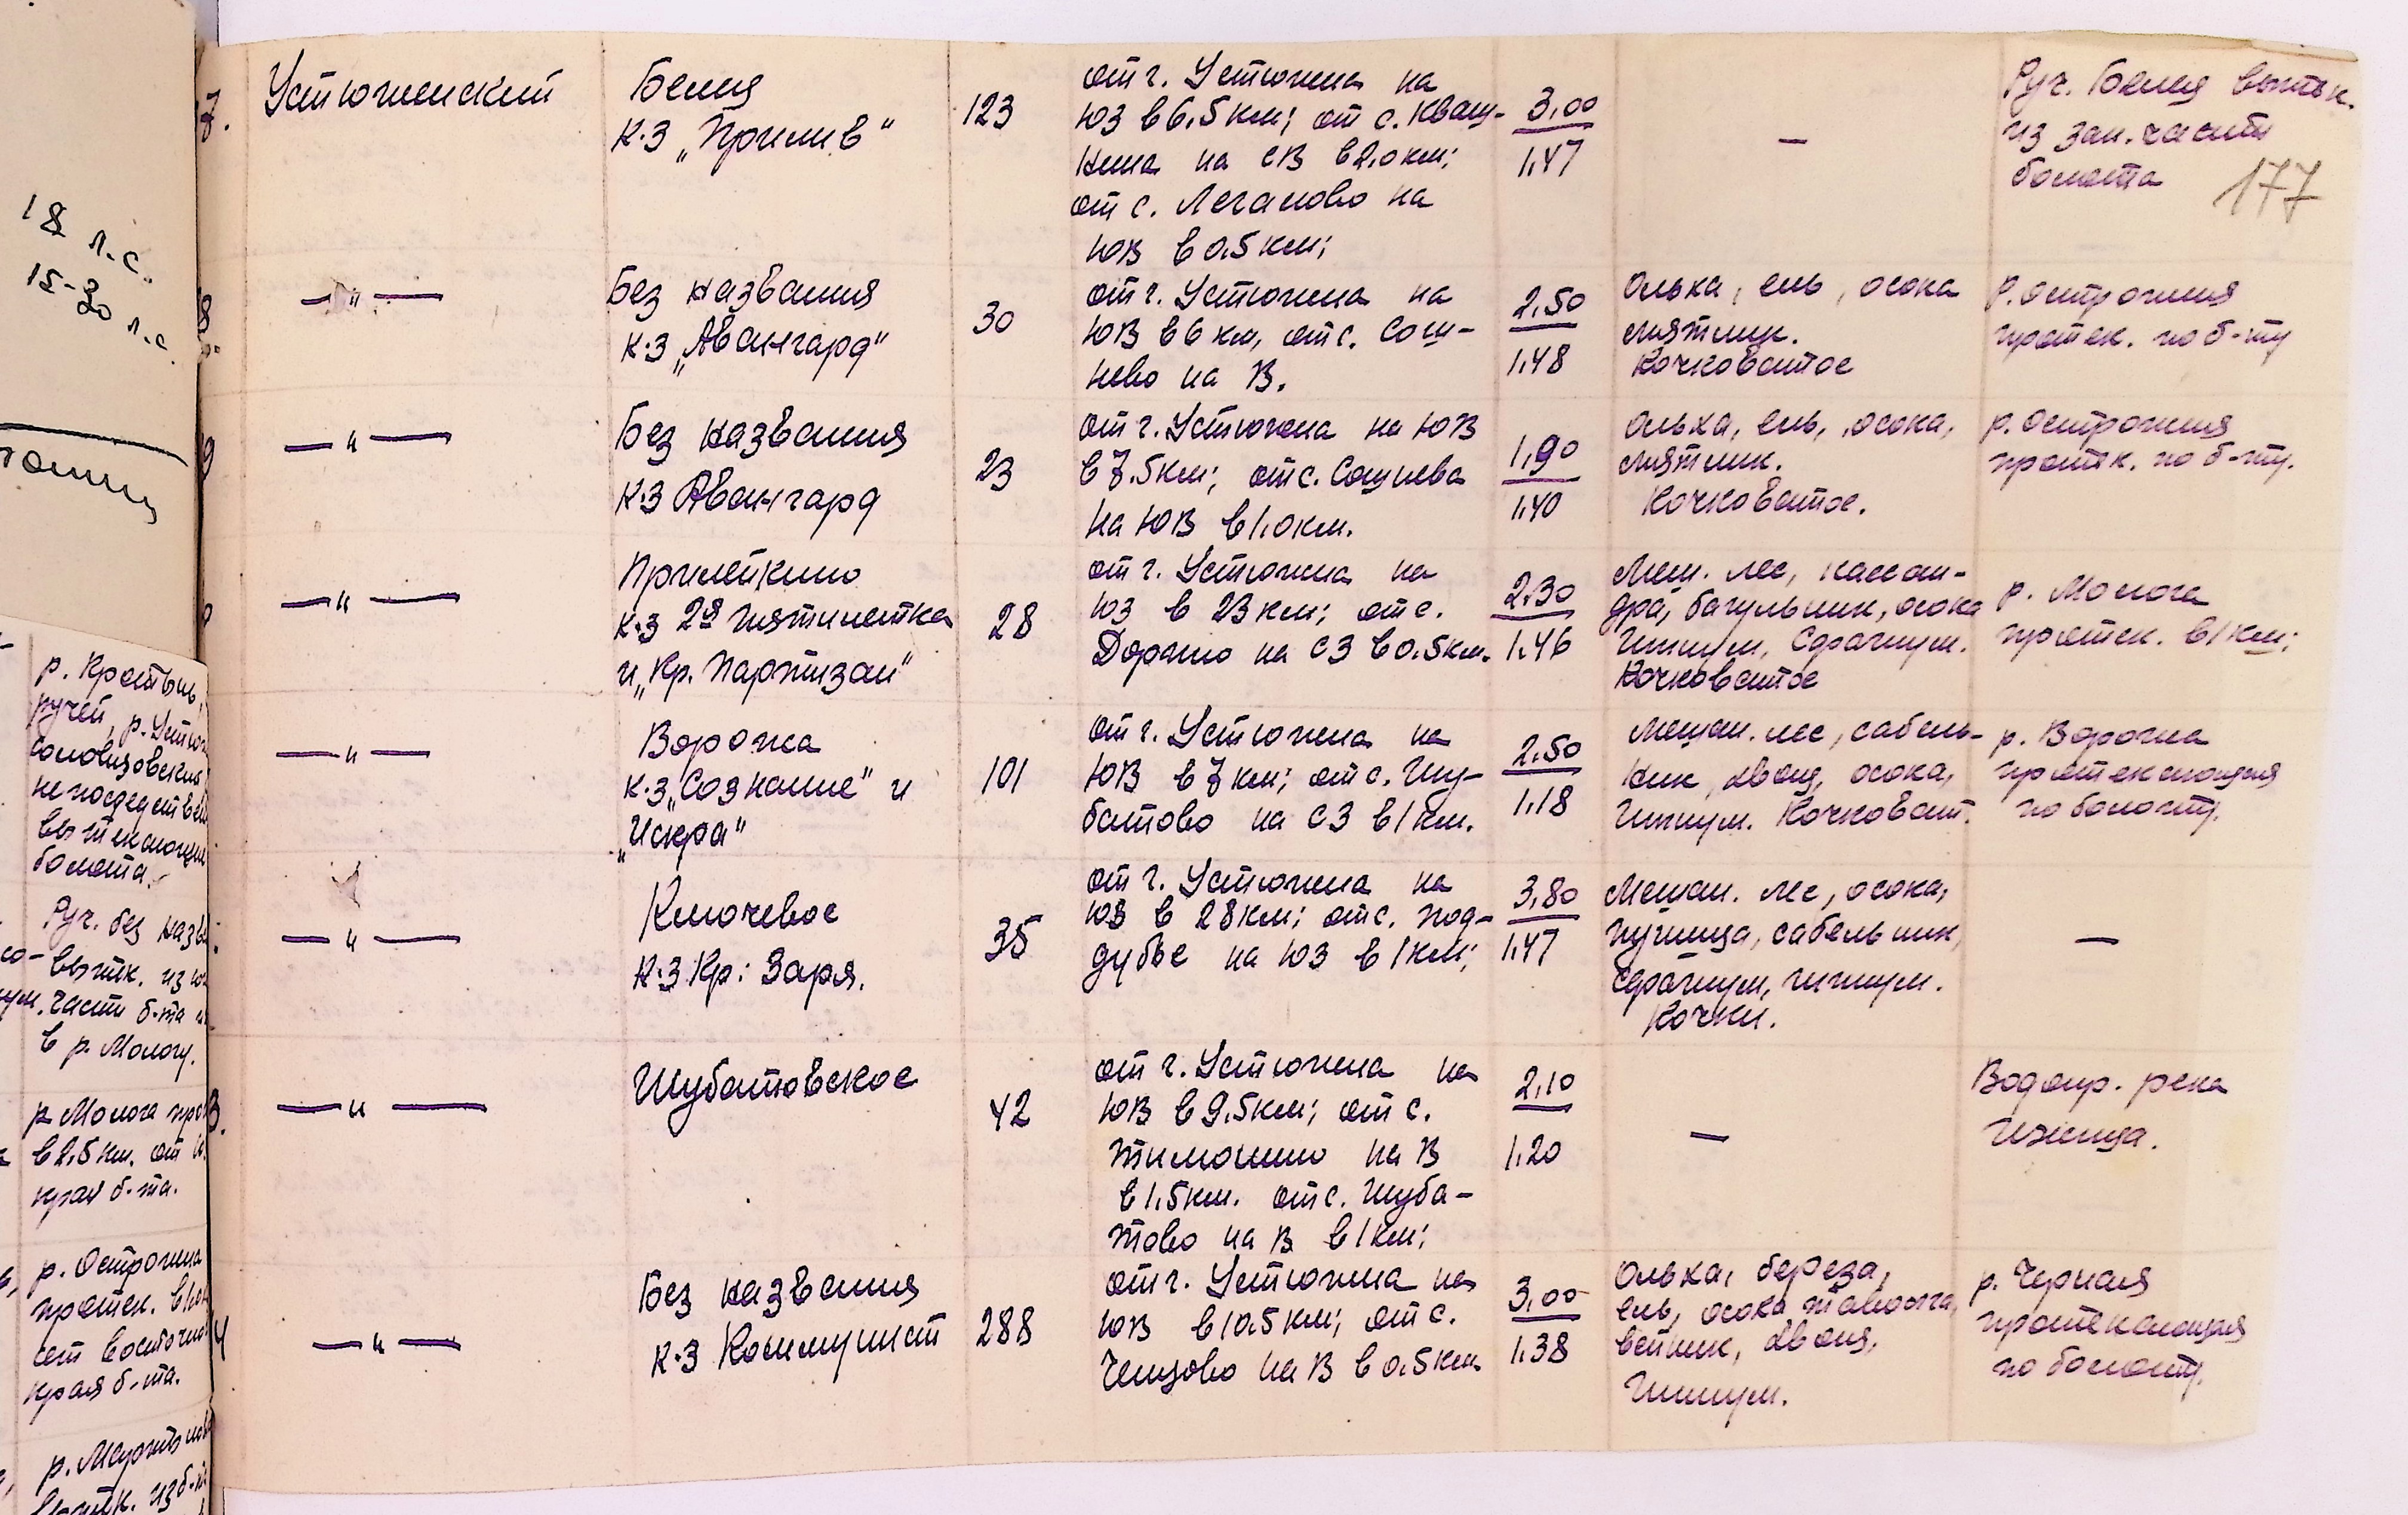 18 л.с.
15-20 л.с.
р. Кротынь,
ручей, р. Устюж
непосредствен
вытекающи
болота.
Руч. без назв
вытек. из ю
части б-та и
в р. Мологу.
р. Молога про
в 2,5 км. от ю.
края б-та.
р. Острожина
протек. вкл
сет восточно
края б-та.
вытек. из б-т
7.
Устюженский
Белия
к-з „Прилив"
123
от г. Устюжна на
ЮЗ в 6,5 км; от с. Кваш-
нина на СВ в 2.0 км;
от с. Леганово на
ЮВ в 0.5 км;
3,00
1,47
—
Руч. Белия вытек.
из зап. части
болота
177
8.
— " —
Без названия
к-з „Авангард"
30
от г. Устюжна на
ЮВ в 6 км, от с. Сош-
нево на В.
2,50
1,48
Ольха, ель, осока
мятлик.
Кочковатое
р. Острожния
протек. по б-ту
9
— " —
Без названия
к-з Авангард
23
от г. Устюжна на ЮВ
в 7.5 км; от с. Сошнева
на ЮВ в 1.0 км.
1,90
1,40
Ольха, ель, осока,
мятлик.
Кочковатое.
р. Острожния
протек. по б-ту.
0
— " —
Прилейкино
к-з 2я пятилетка
и „Кр. Партизан"
28
от г. Устюжна на
ЮЗ в 23 км; от с.
Доржно на СЗ в 0.5 км.
2.30
1,46
Меш. лес, кассан-
дра, багульник, осока
Гипнум, Сфагнум.
Кочковатое
р. Молога
протек. в 1 км;
— " —
Ворожа
к-з „Сознание" и
„Искра"
101
от г. Устюжна на
ЮВ в 7 км; от с. Шу-
батово на СЗ в 1 км.
2.50
1,18
Мешан. лес, сабель-
ник, хвощ, осока,
Гипнум. Кочковат.
р. Ворожа
протекающая
по болоту.
— " —
Ключевое
к-з Кр. Заря.
35
от г. Устюжна на
ЮЗ в 28 км; от с. Под-
дубье на ЮЗ в 1 км;
3,80
1,47
Мешан. лес, осока,
пушица, сабельник,
сфагнум, гипнум.
Кочки.
—
3.
— " —
Шубатовское
42
от г. Устюжна на
ЮВ в 9.5 км; от с.
Тимошино на В
в 1.5 км. от с. Шуба-
тово на В в 1 км;
2,10
1,20
—
Водопр. река
Ижица.
4
— " —
Без названия
к-з Коммунист
288
от г. Устюжна на
ЮВ в 10.5 км; от с.
Ченцово на В в 0.5 км
3,00
1,38
Ольха, береза,
ель, осока таволга,
вейник, хвощ,
Гипнум.
р. Черная
протекающая
по болоту.